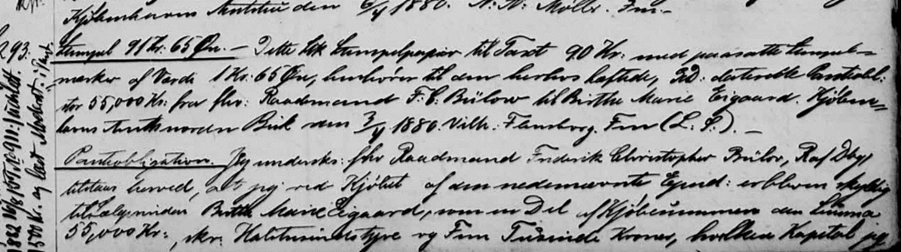 Kjøbenhavns Amtstue den 6/4 1880. N. N. Møller. Fm.
293. Stempel 91 Kr. 65 Øre. — Dette Stk Stempelpapir til Taxt 90 Kr. med paasatte Stempel-
mærker af Værdi 1 Kr. 65 Øre, henhører til den herhos hæftede, D: d: udstedte Panteobl:
stor 55,000 Kr: fra fhv: Raadmand F. C. Bülow til Birthe Marie Eigaard. Kjøben-
havns Amts Birk den 3/4 1880. Vilh: Flensborg. Fm (L. S.). —
Panteobligation. Jeg underskr: fhv Raadmand Frederik Christopher Bülow, Raf Dbg
tilstaar herved, at jeg ved Kjøbet af den nedennævnte Eiend: er bleven skyldig
til Sælgersken Birthe Marie Eigaard, som en Del af Kjøbesummen den Summa
55,000 Kr:, skr. Halvtredsindstyve og Fem Tusinde Kroner, hvilken Kapital jeg